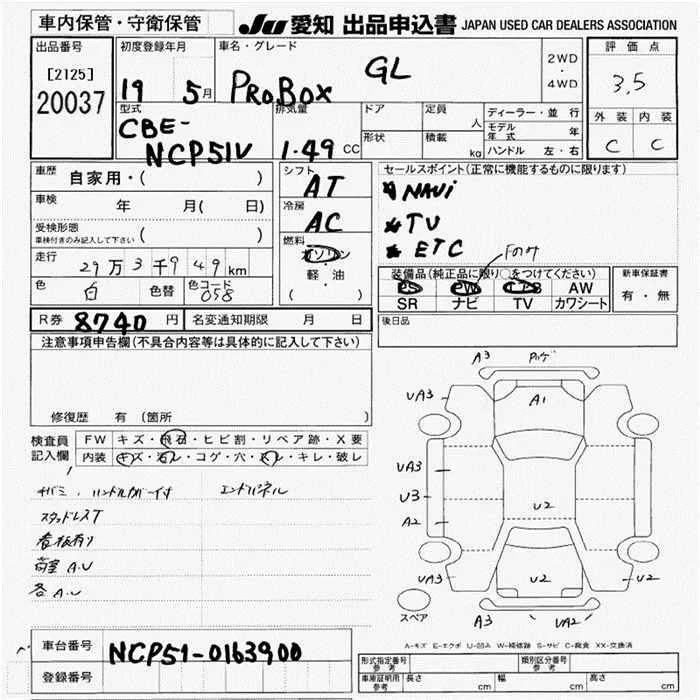 車内保管・守衛保管
JU 愛知 出品申込書 JAPAN USED CAR DEALERS ASSOCIATION
出品番号
[2125]
20037
初度登録年月
19 5月
車名・グレード
PROBOX GL
2WD
・
4WD
評価点
3.5
外装 内装
C C
型式
CBE-
NCP51V
排気量
1.49 CC
ドア
形状
定員 人
積載 kg
ディーラー・並行
モデル年式 年
ハンドル 左・右
車歴
自家用・( )
車検 年 月( 日)
受検形態
車検付きのみ記入して下さい ( )
走行
29万3千949km
色 白 色替 色コード 058
シフト
AT
冷房
AC
燃料
ガソリン
軽・油
( )
セールスポイント(正常に機能するものに限ります)
NAVi
TV
ETC
Fのみ
装備品(純正品に限り○をつけてください)
PS PW エアB AW
SR ナビ TV カワシート
新車保証書
有・無
R券 8740 円 名変通知期限 月 日
後日品
注意事項申告欄(不具合内容等は具体的に記入して下さい)
修復歴 有 (箇所 )
検査員
記入欄
FW キズ・飛石・ヒビ割・リペア跡・X要
内装 キズ・汚レ・コゲ・穴・スレ・キレ・破レ
ハンドルカバー付
エンドパネル
スタッドレスT
看板有り
荷室 A.U
各 A.U
A3
UA3
A1
UA3
U3
A2
U2
UA3
U2
U3
A3
UA2
スペア
A-キズ E-エクボ U-凹み W-補修跡 S-サビ C-腐食 XX-交換済
車台番号 NCP51-0163900
登録番号
形式指定番号 参考
類別区分番号 参考
車庫証明用 参考 長さ cm 幅 cm 高さ cm